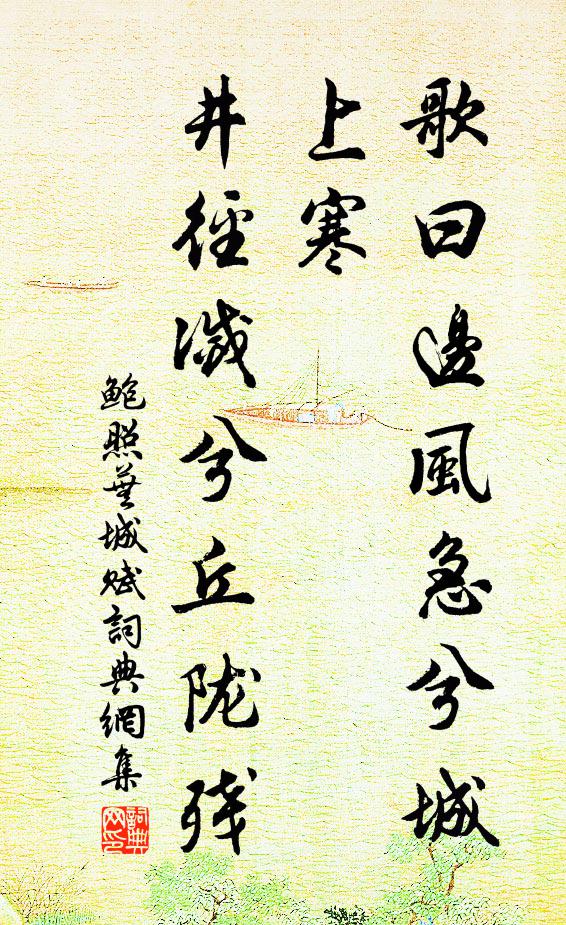 歌曰邊風急兮城
上寒
井徑滅兮丘陇残
鮑照蕪城赋詞典網集
詞典
网印